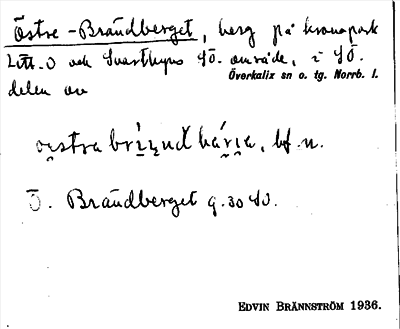 Östre-Brändberget, berg på kronopark
Litt. O och Svartbyns SÖ. område, i SÖ.
Överkalix sn o. tg. Norrb. l.
delen av
bf. n.
Ö. Brändberget g. 30 SÖ.
EDVIN BRÄNNSTRÖM 1936.